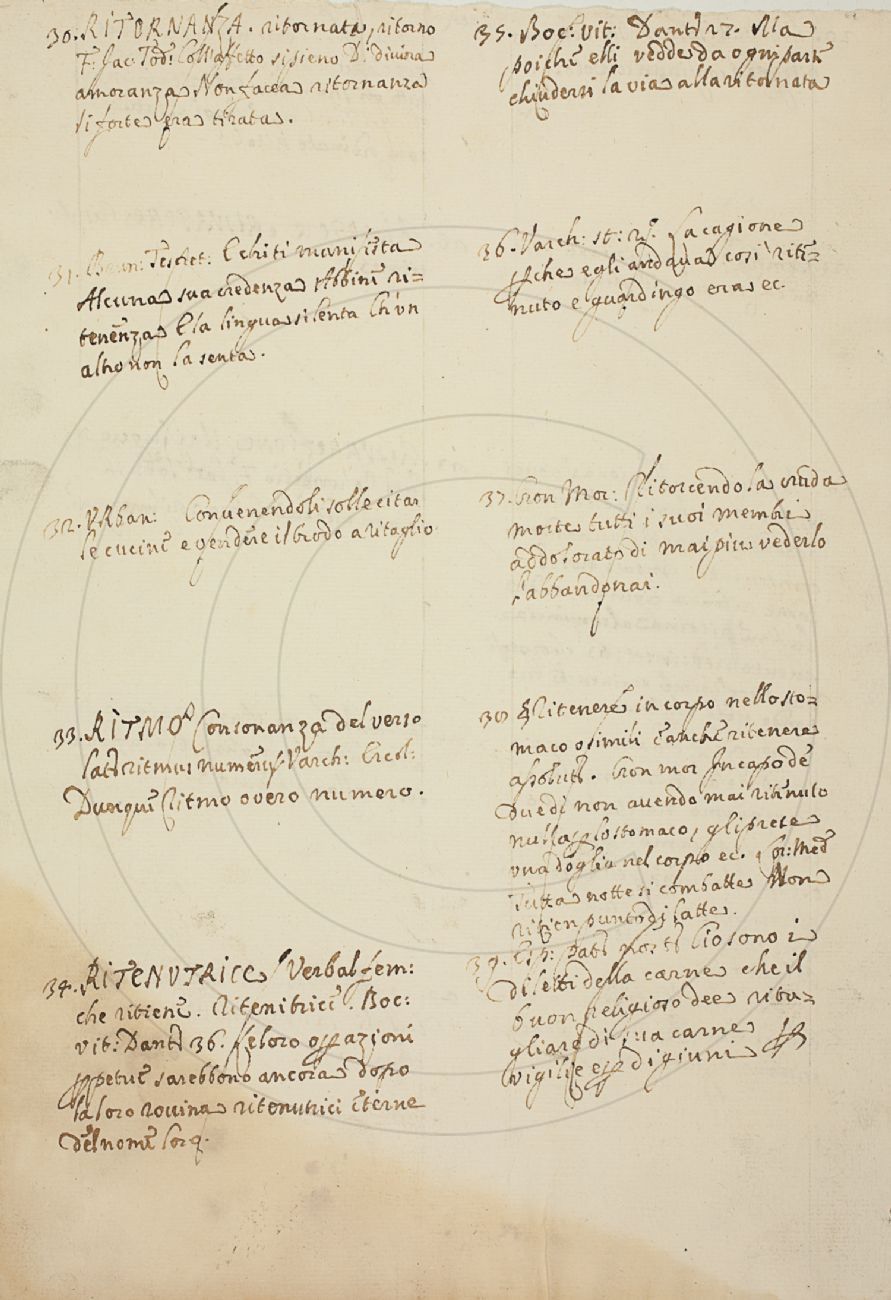 30. RITORNANZA. ritornata, ritorno
F: Jac: Tod: Coll'affetto si sieno Di divina
amoranza Non facea ritornanza
si forte era tirata.
31. Brun: Tesoret: E chi ti manifesta
Alcuna sua credenza Abbine ri=
tenenza E la lingua si lenta Ch'un
altro non la senta.
32. URban: Convenendoli sollecitar
le cucine e vendere il brodo a ritaglio
33. RITMO Consonanza del verso
latᵒ ritmus numerus. Varch: Ercol:
Dunque Ritmo overo numero.
34. RITENUTRICE Verbal fem:
che ritiene. Ritenitrice. Boc:
vit: Dant 36. Se loro opazioni
ppetue sarebbono ancora dopo
la loro rovina ritenutrici eterne
del nome loro.
35. Boc: vit: Dant 27. Ma
poiche elli vedde da ogni parte
chiudersi la via alla ritornata
36. Varch: st: La cagione
pche egli andava così rite=
nuto e guardingo era ec.
37. Gron Mor: Ritorcendo la cruda
morte tutti i suoi membri
addolorato di mai piu vederlo
l'abbandonai.
38 § Ritenere in corpo nello sto=
maco o simili e anche ritenere
assolut. Gron mor In capo de
due dì non avendo mai ritenuto
nulla p lo stomaco, gli prese
una doglia nel corpo ec. Lor: Med
Tutta notte si combatte Non
ritien punto di latte.
39. Esp: Pat: nost: Cio sono i
diletti della carne che il
buon religioso dee rita=
gliare di sua carne p
vigilie e p digiuni